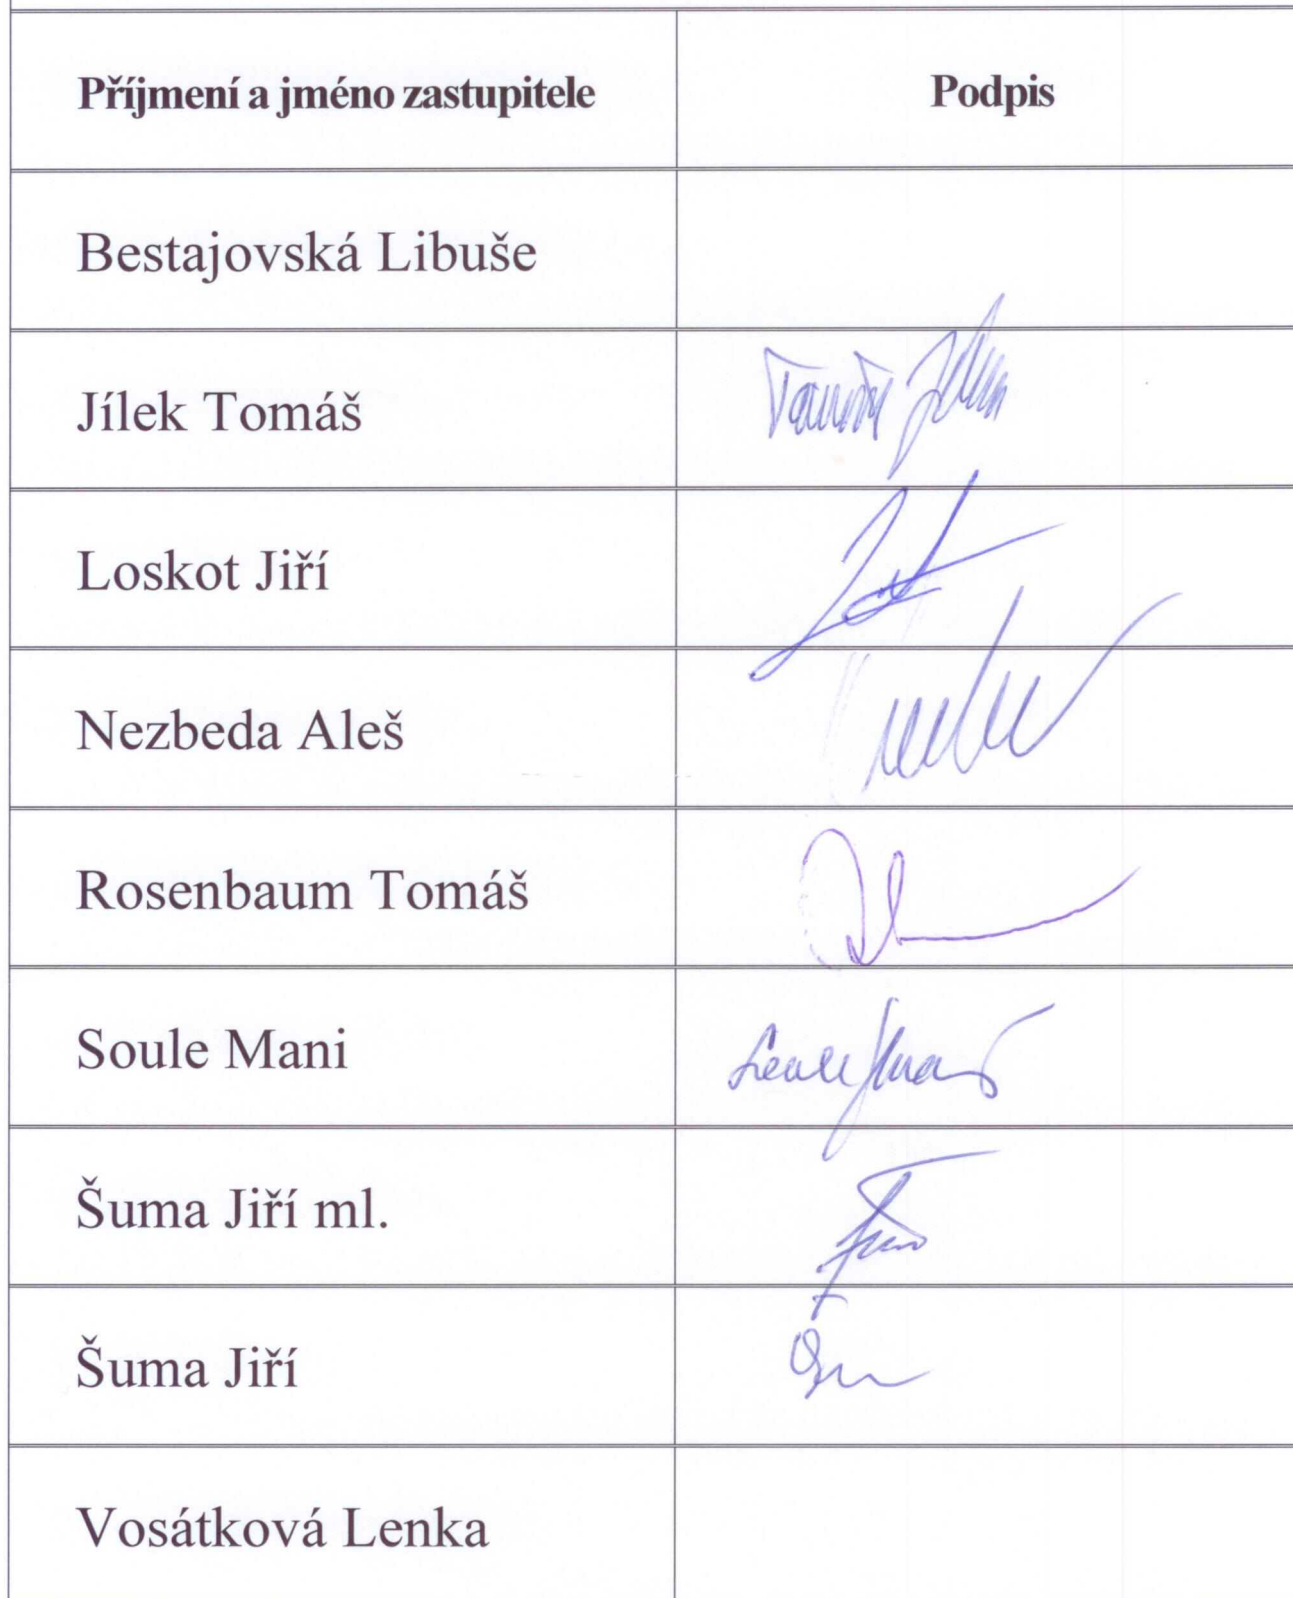 Příjmení a jméno zastupitele Podpis
Bestajovská Libuše
Jílek Tomáš
Loskot Jiří
Nezbeda Aleš
Rosenbaum Tomáš
Soule Mani
Šuma Jiří ml.
Šuma Jiří
Vosátková Lenka